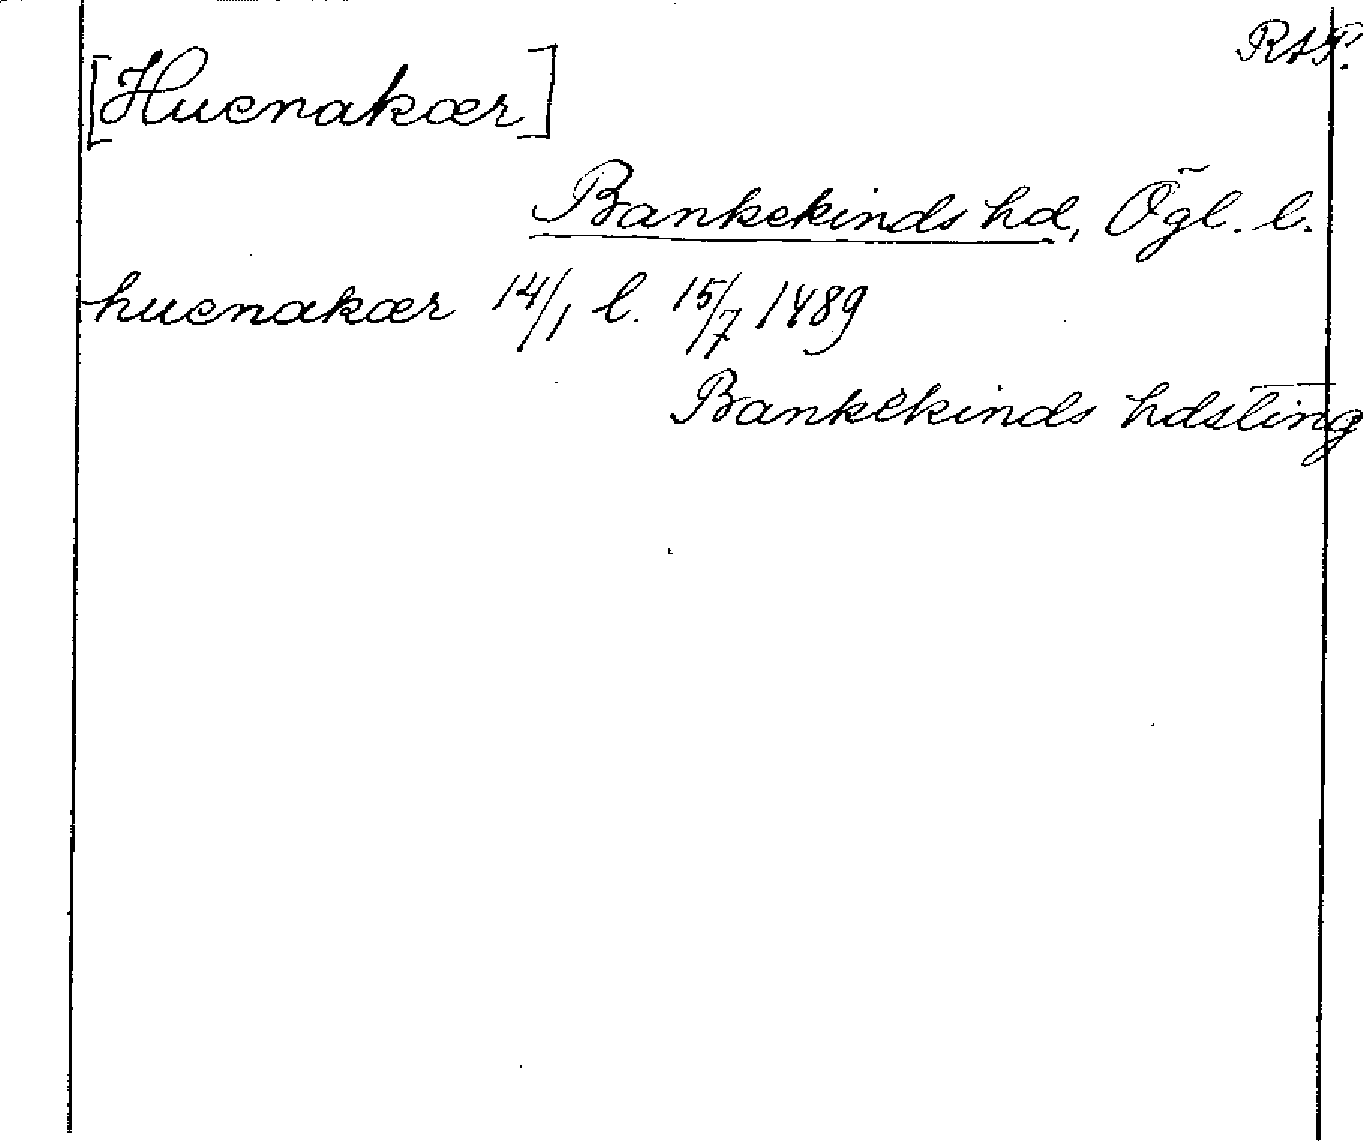 RAP.
[Huenakær]
Bankekinds hd, Ögl. l.
huenakær 14/1 l. 15/7 1489
Bankekinds hdsting